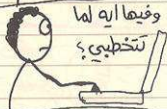 وفيها ايه لما
تتخطبي؟